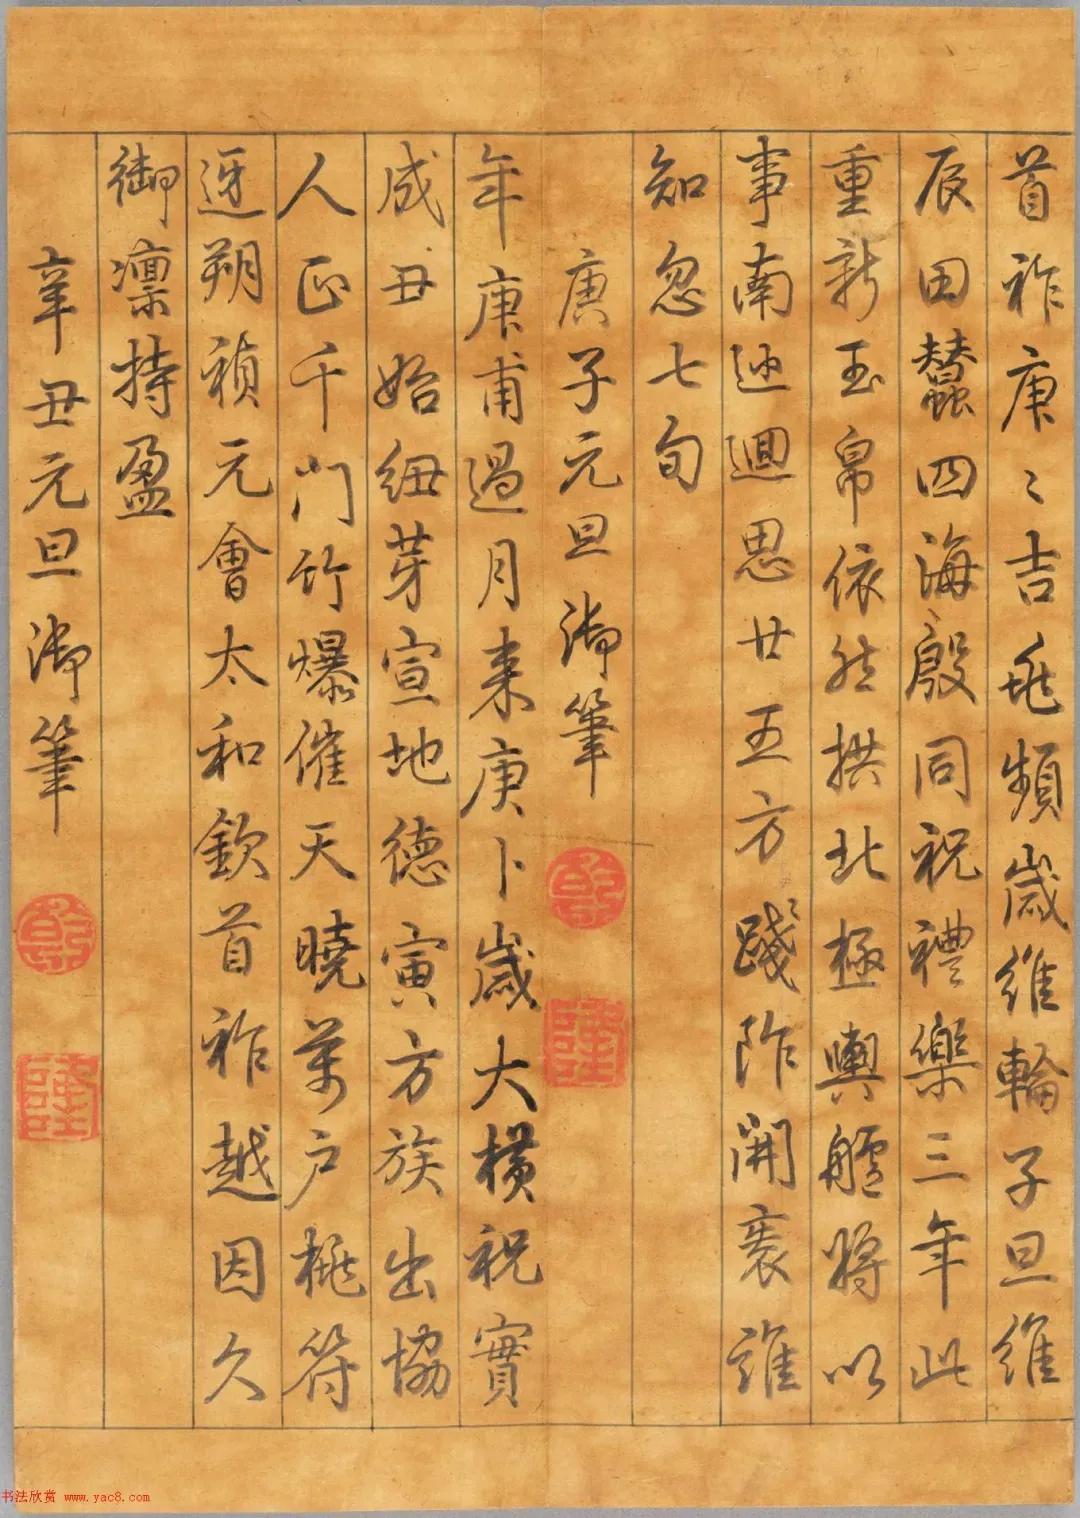 首祚庚〻吉兆頻歲維輪子旦維
辰田蠶四海殷同祝禮樂三年此
重新玉帛依然拱北極輿艫將以
事南廵廻思廿五方踐阼開袠誰
知忽七旬
庚子元旦御筆
乾
隆
年庚甫過月来庚卜歲大橫祝實
成丑始紐芽宣地德寅方族出協
人正千門竹爆催天曉萬户桃符
迓朔禎元會太和欽首祚越因久
御凛持盈
辛丑元旦御筆
乾
隆
书法欣赏 www.yac8.com